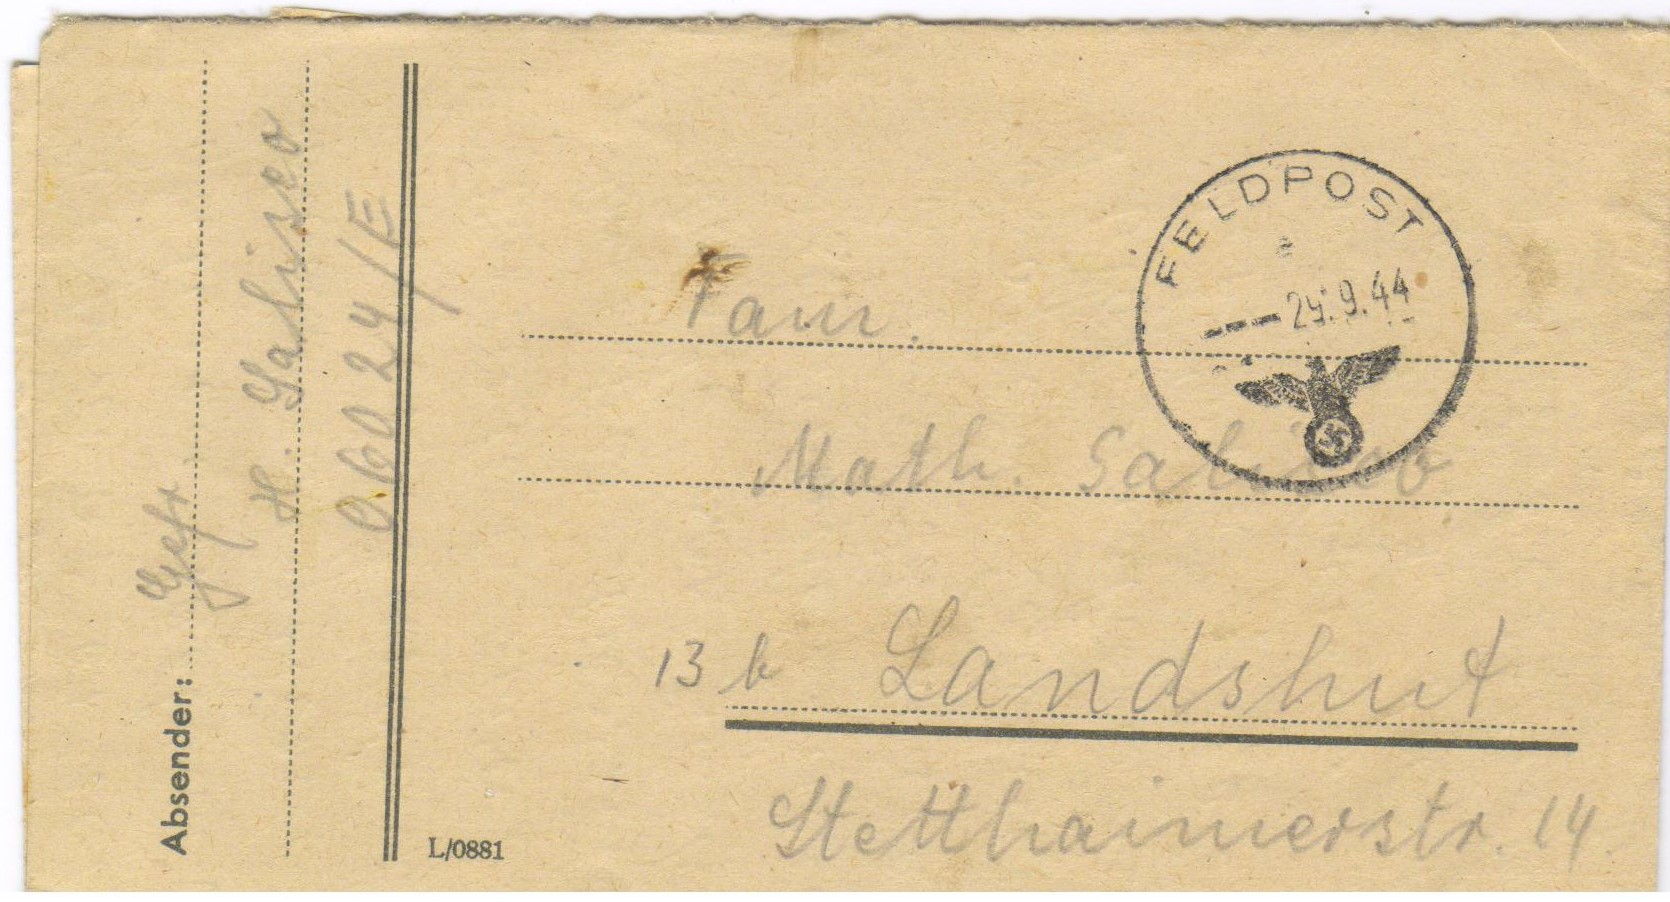 Absender: Gefr
H. Salisco
06024/E
FELDPOST
a
29.9.44
Fam.
Math. Salisco
13 b Landshut
Stetthaimerstr. 14.
L/0881